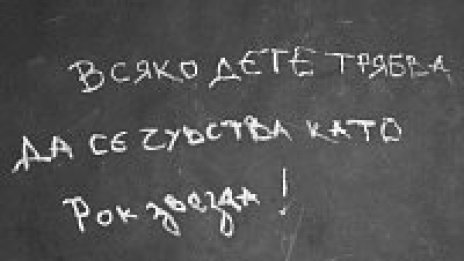 ВСЯКО ДЕТЕ ТРЯБВА
ДА СЕ ЧУВСТВА КАТО
Рок звезда!